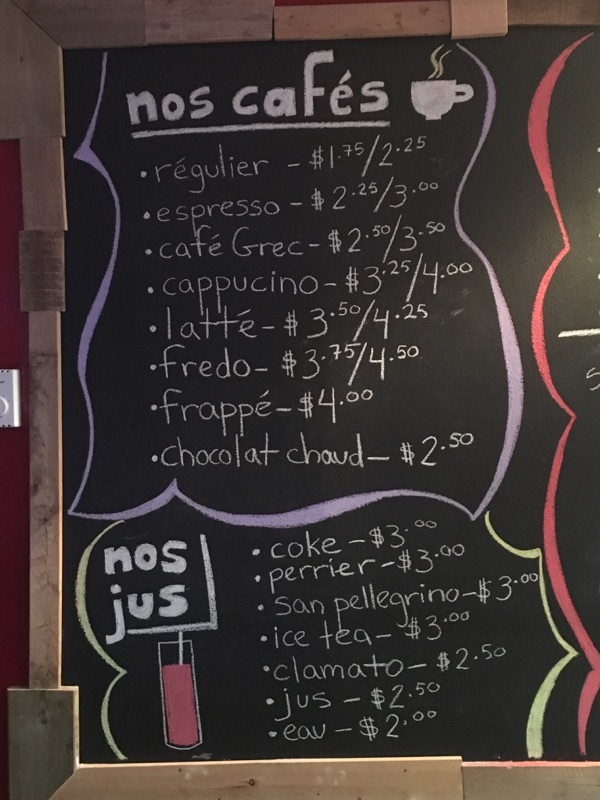 nos cafés
• régulier - $1.75/2.25
• espresso - $2.25/3.00
• café Grec - $2.50/3.50
• cappucino - $3.25/4.00
• latté - $3.50/4.25
• fredo - $3.75/4.50
• frappé - $4.00
• chocolat chaud - $2.50
nos
jus
• coke - $3.00
• perrier - $3.00
• san pellegrino - $3.00
• ice tea - $3.00
• clamato - $2.50
• jus - $2.50
• eau - $2.00